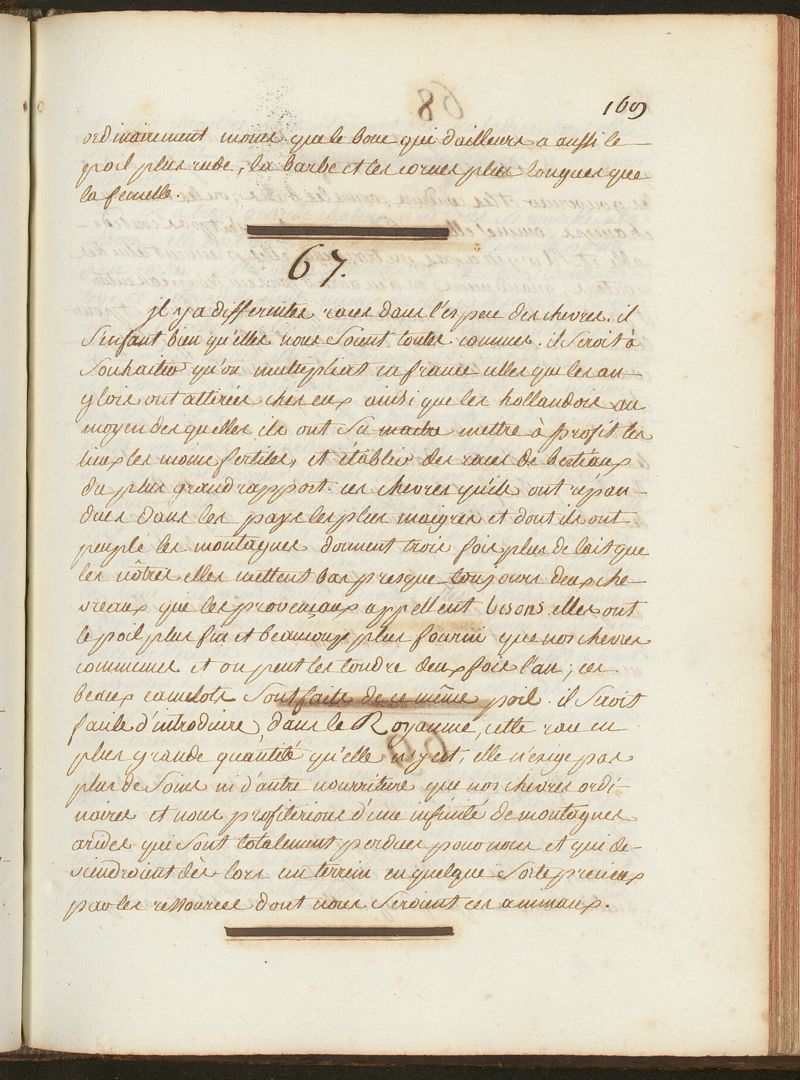 169
ordinairement moins que le bouc qui d'ailleurs a aussi le
poil plus rude, la barbe et les cornes plus longues que
la femelle.
67.
jl y a differentes races dans l'espece des chevres. il
s'enfaut bien qu'elles nous soient toutes connues. il seroit à
souhaiter qu'on multipliat en france celles que les an-
glois ont attirées chez eux ainsi que les hollandois au
moyen des quelles ils ont su mettre à profit les
lieux les moins fertiles, et établir des races de bestiaux
du plus grand rapport. ces chevres qu'ils ont répan-
dues dans les pays les plus maigres et dont ils ont
peuplé les montagnes donnent trois fois plus de lait que
les nôtres elles mettent bas presque toujours deux che-
vreaux que les provençaux appellent bisons. elles ont
le poil plus fin et beaucoup plus fourni que nos chevres
communes et on peut les tondre deux fois l'an; ces
beaux camelots sont faits de ce même poil. il seroit
facile d'introduire dans le Royaume, cette race en
plus grande quantité qu'elle n'y est, elle n'exige pas
plus de soins ni d'autre nourriture que nos chevres ordi-
naires et nous profiterions d'une infinité de montagnes
arides qui sont totalement perdues pour nous et qui de-
viendroient dès lors un terrein en quelque sorte precieux
par les ressources dont nous seroient ces animaux.